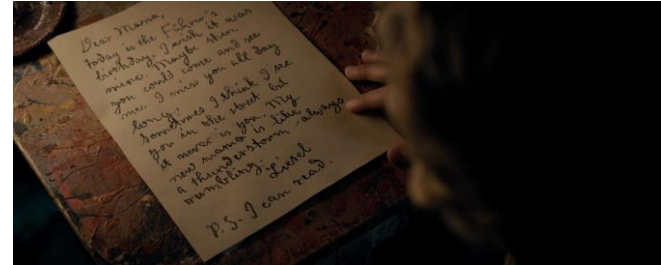 Dear Mama,
today is the Führer's
birthday. I wish it was
mine. Maybe then
you could come and see
me. I miss you all day
long.
Sometimes I think I see
you in the street but
it never is you. My
new mama is like
a thunderstorm, always
rumbling. Liesel
P.S. I can read.